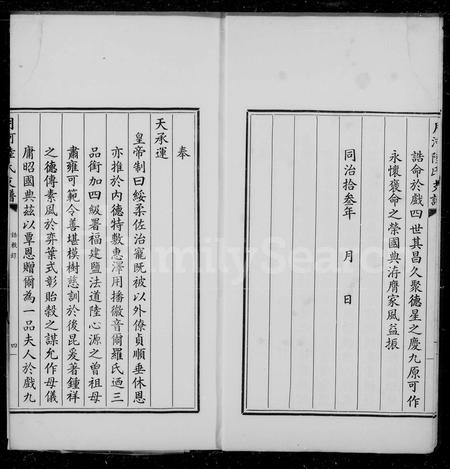 誥命於戲四世其昌久聚德星之慶九原可作
永懷褒命之榮國典洊膺家風益振
同治拾叁年　月　日
奉
天承運
皇帝制曰綏柔佐治寵既被以外僚貞順垂休恩
亦推於內德特敷惠澤用播徽音爾羅氏迺三
品銜加四級署福建鹽法道陸心源之曾祖母
肅雍可範令善堪模樹慈訓於後昆爰著鍾祥
之德傳素風於弈葉式彰貽穀之謀允作母儀
庸昭國典茲以覃恩贈爾為一品夫人於戲九
誥敕錄
四
FamilySearch